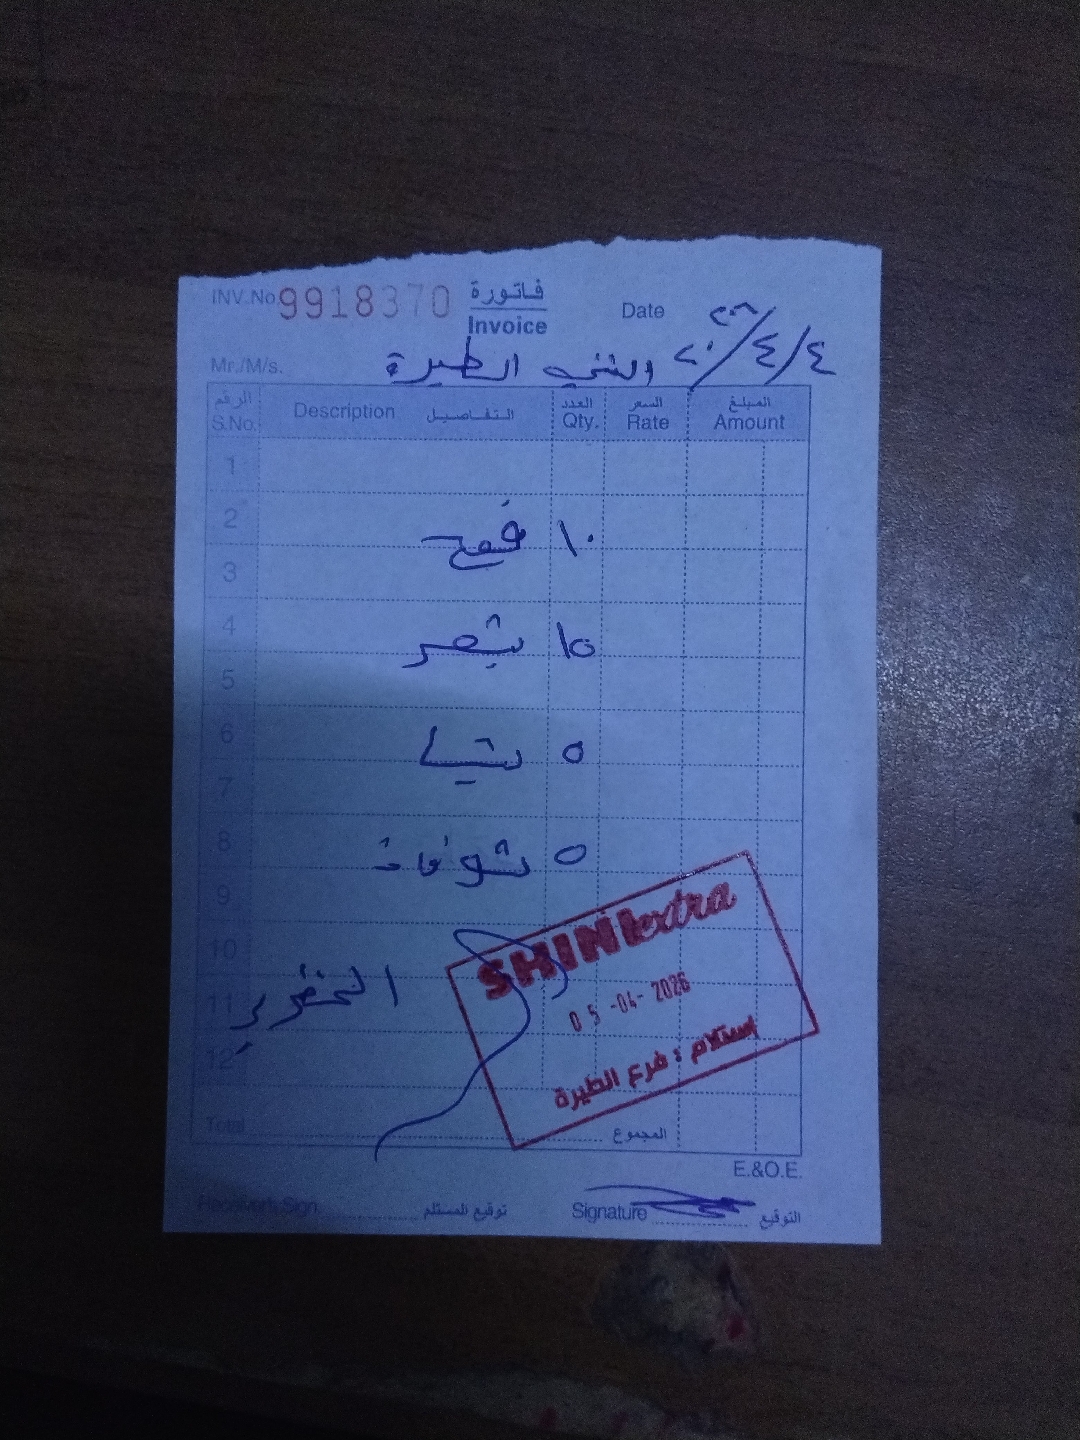 INV.No. 9918370
فاتورة
Invoice
Date ٢٠٢٦/٤/٤
Mr./M/s. الطيرة
الرقم التفاصيل العدد السعر المبلغ
S.No. Description Qty. Rate Amount
1
2
١٠ قمح
3
4
١٥ شعير
5
6
٥ شيا
7
8
٥ شوفان
9
10
11
12
SHINI extra
05-04-2026
إستلام : فرع الطيرة
Total المجموع
E.&O.E.
Receiver's Sign. توقيع المستلم Signature التوقيع